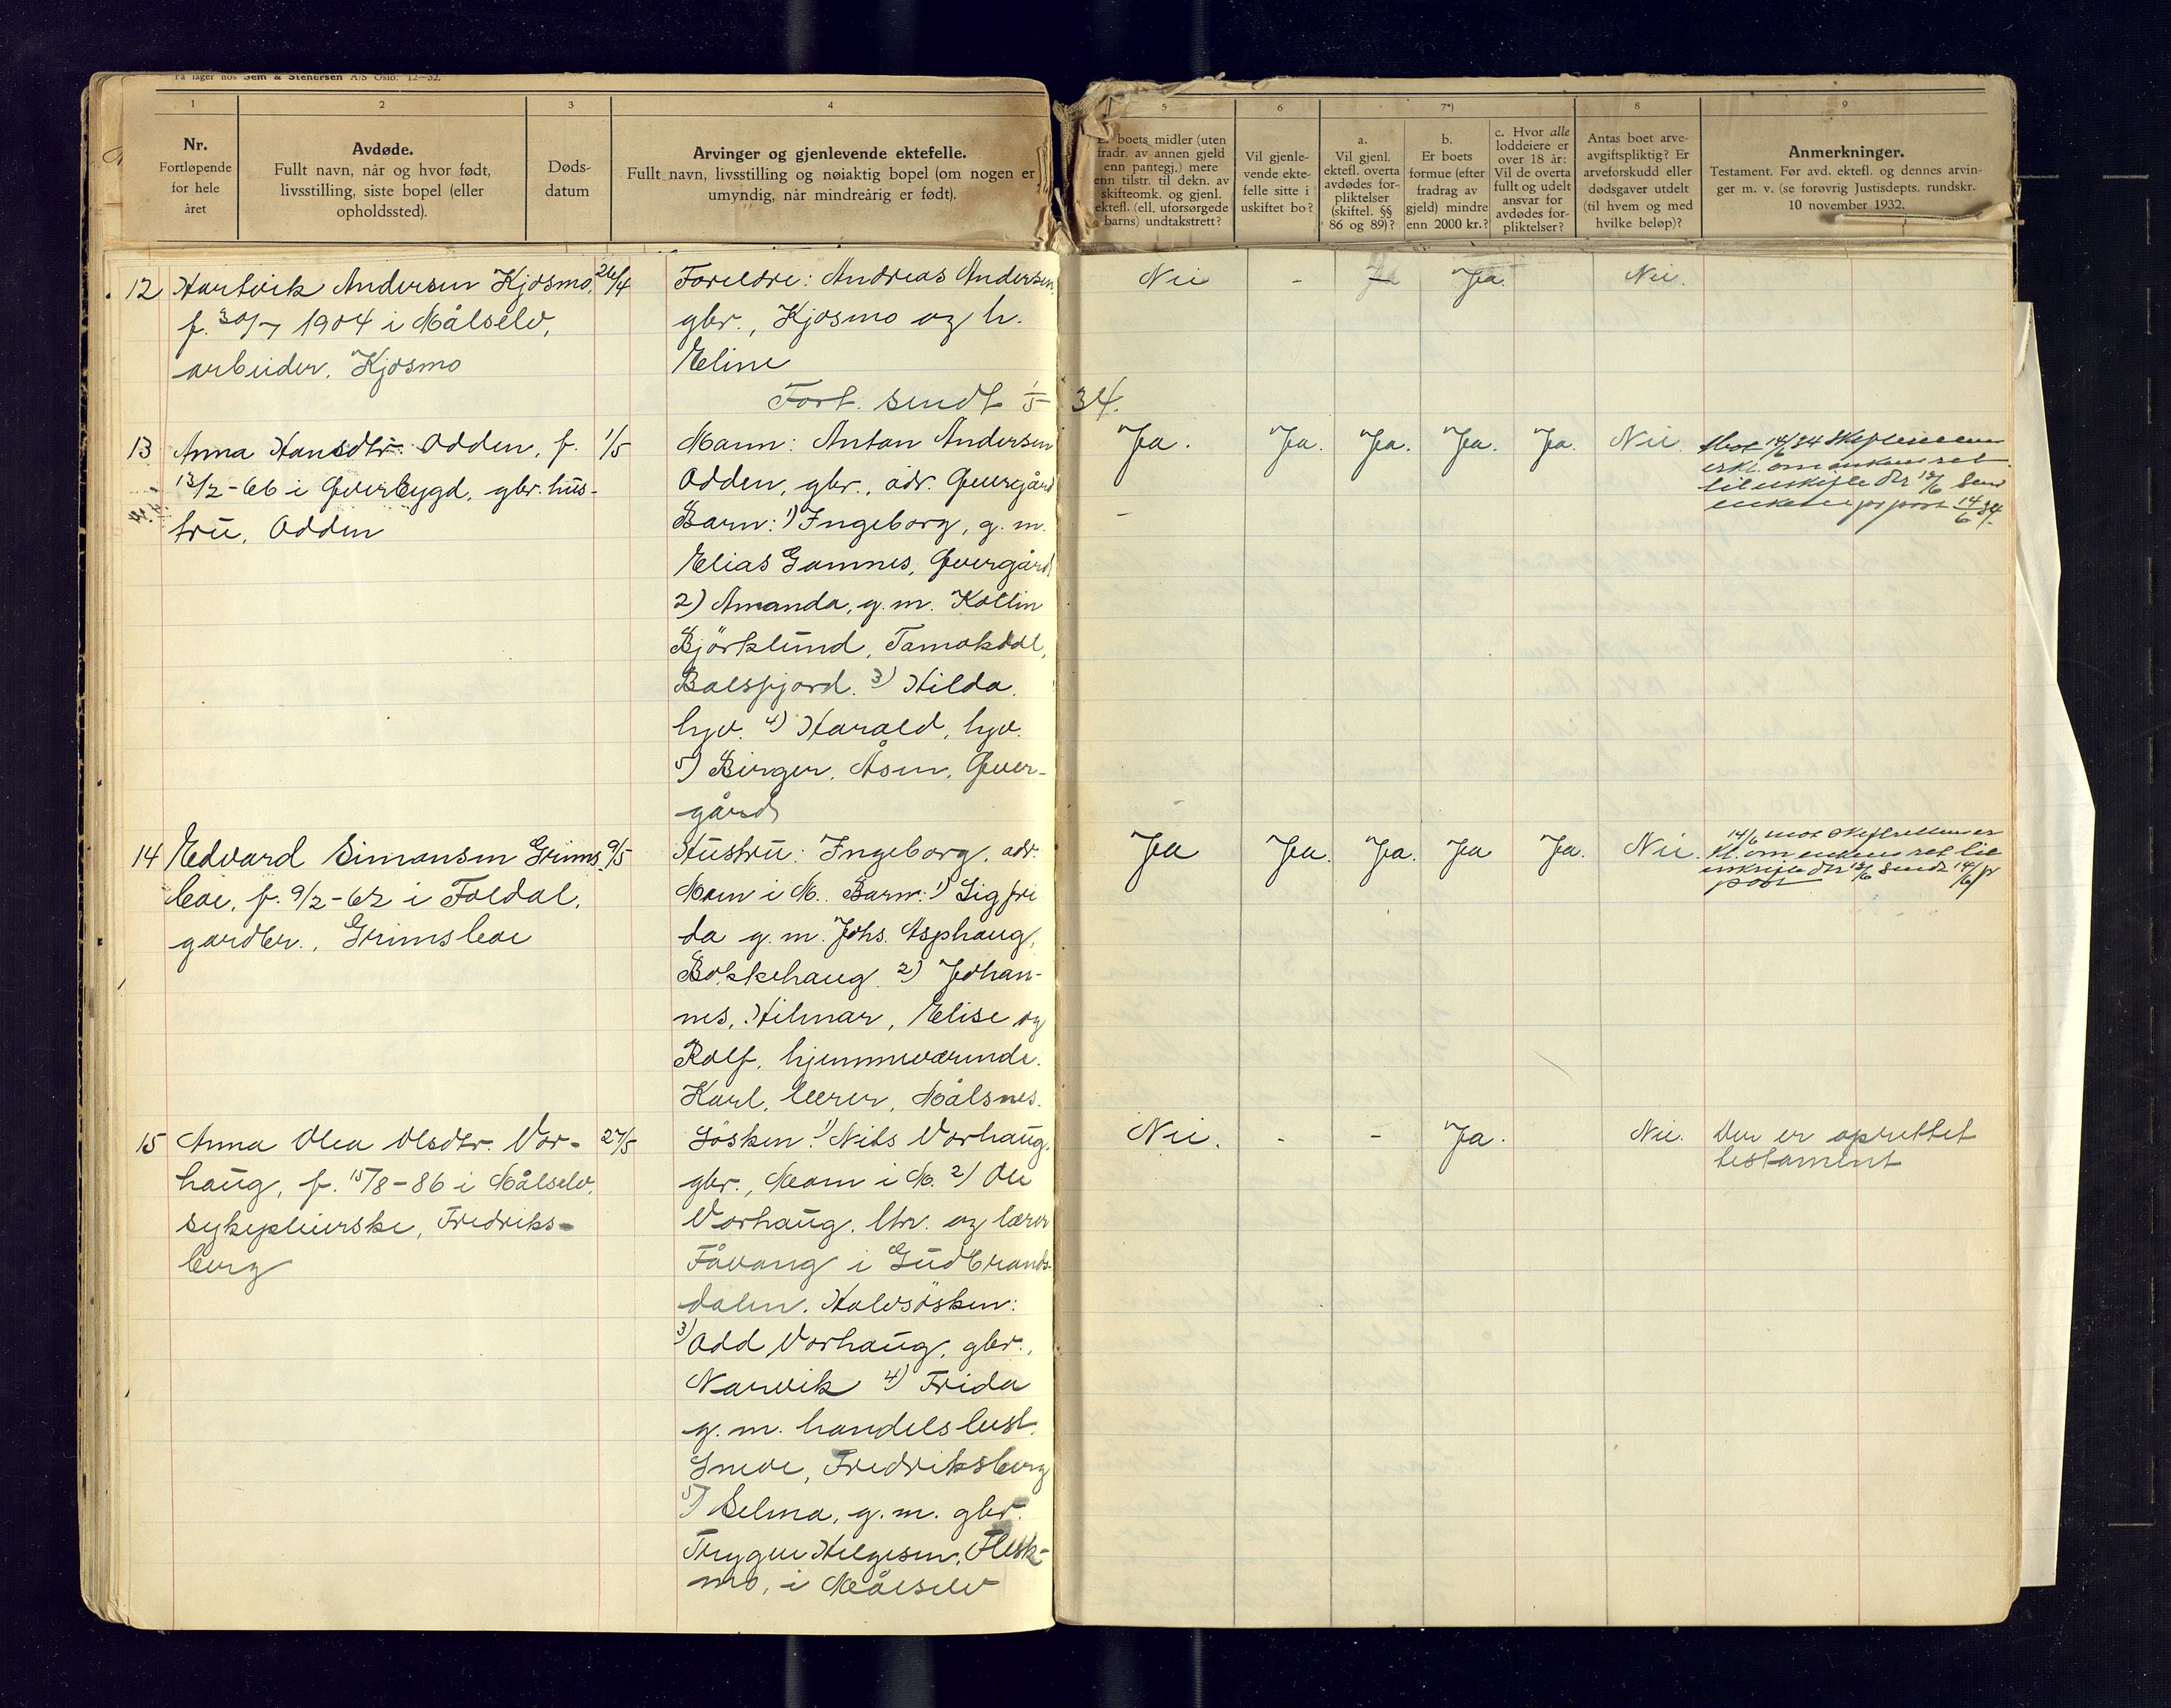 På lager hos Sem & Stenersen A/S Oslo. 12—32.
1
Nr.
Fortløpende
for hele
året
2
Avdøde.
Fullt navn, når og hvor født,
livsstilling, siste bopel (eller
opholdssted).
3
Døds-
datum
4
Arvinger og gjenlevende ektefelle.
Fullt navn, livsstilling og nøiaktig bopel (om nogen er
umyndig, når mindreårig er født).
5
boets midler (uten
fradr. av annen gjeld
enn pantegj.) mere
enn tilstr. til dekn. av
skifteomk. og gjenl.
ektefl. (ell. uforsørgede
barns) undtakstrett?
6
Vil gjenle-
vende ekte-
felle sitte i
uskiftet bo?
7*)
a.
Vil gjenl.
ektefl. overta
avdødes for-
pliktelser
(skiftel. §§
86 og 89)?
b.
Er boets
formue (efter
fradrag av
gjeld) mindre
enn 2000 kr.?
c. Hvor alle
loddeiere er
over 18 år:
Vil de overta
fullt og udelt
ansvar for
avdødes for-
pliktelser?
8
Antas boet arve-
avgiftspliktig? Er
arveforskudd eller
dødsgaver utdelt
(til hvem og med
hvilke beløp)?
9
Anmerkninger.
Testament. Før avd. ektefl. og dennes arvin-
ger m. v. (se forøvrig Justisdepts. rundskr.
10 november 1932.
12 Hartvik Andersen Kjosmo, 26/4
f. 30/7 1904 i Målselv,
arbeider, Kjosmo
Foreldre: Andreas Andersen,
gbr., Kjosmo og h.
Eline
Fort. sendt 1/5 34.
Nei - Ja Ja. Nei.
13 Anna Hansdtr. Odden, f. 1/5
13/2-66 i Øverbygd, gbr. hus-
tru, Odden
Mann: Anton Andersen
Odden, gbr., adr. Øvergård
Barn: 1) Ingeborg, g. m.
Elias Gamnes, Øvergård
2) Amanda, g. m. Kollin
Björklund, Tamokdal,
Balsfjord. 3) Hilda,
hjv. 4) Harald, hjv.
5) Birger, Åsen, Øver-
gård
Ja. Ja. Ja. Ja. Ja. Nei
til uskifte dtr 13/6 Send
pr post 14/6 34.
14 Edvard Simonsen Grims 9/5
boe, f. 9/2-62 i Foldal,
gardbr., Grimsboe
Hustru: Ingeborg, adr.
Moen i M. Barn: 1) Sigfri
da g. m. Johs. Asphaug,
Bokkehaug 2) Johan-
nes, Hilmar, Elise og
Rolf, hjemmeværende.
Karl, lærer, Målsnes.
Ja Ja. Ja. Ja Ja. Nei.
14/6 mot Skifterettens er
kl. om enkens ret til
uskifte dtr 13/6 Sendt 14/6 pr
post
15 Anna Olea Olsdtr. Vor- 27/5
haug, f. 15/8-86 i Målselv,
sykepleierske, Fredriks-
berg
Søsken: 1) Nils Vorhaug,
gbr., Moen i M. 2) Ole
Vorhaug, lhr. og lærer
Fåvang i Gudbrands-
dalen. Halvsøsken:
3) Odd Vorhaug, gbr.,
Narvik 4) Frida
g. m. handelsbest.
Sneve, Fredriksberg
5) Selma, g. m. gbr.
Trygve Helgesen, Flesk-
mo, i Målselv
Nei. - - Ja. Nei. Der er oprettet
testament